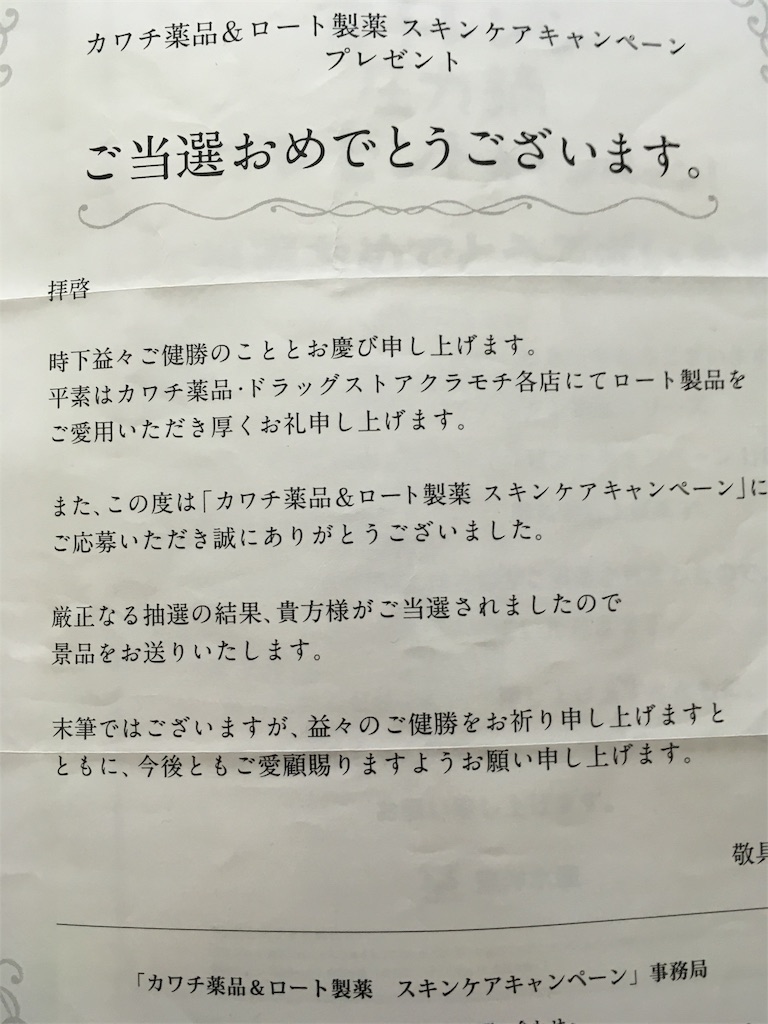 カワチ薬品&ロート製薬 スキンケアキャンペーン
プレゼント
ご当選おめでとうございます。
拝啓
時下益々ご健勝のこととお慶び申し上げます。
平素はカワチ薬品・ドラッグストアクラモチ各店にてロート製品を
ご愛用いただき厚くお礼申し上げます。
また、この度は「カワチ薬品&ロート製薬 スキンケアキャンペーン」に
ご応募いただき誠にありがとうございました。
厳正なる抽選の結果、貴方様がご当選されましたので
景品をお送りいたします。
末筆ではございますが、益々のご健勝をお祈り申し上げますと
ともに、今後ともご愛顧賜りますようお願い申し上げます。
敬具
「カワチ薬品&ロート製薬 スキンケアキャンペーン」事務局